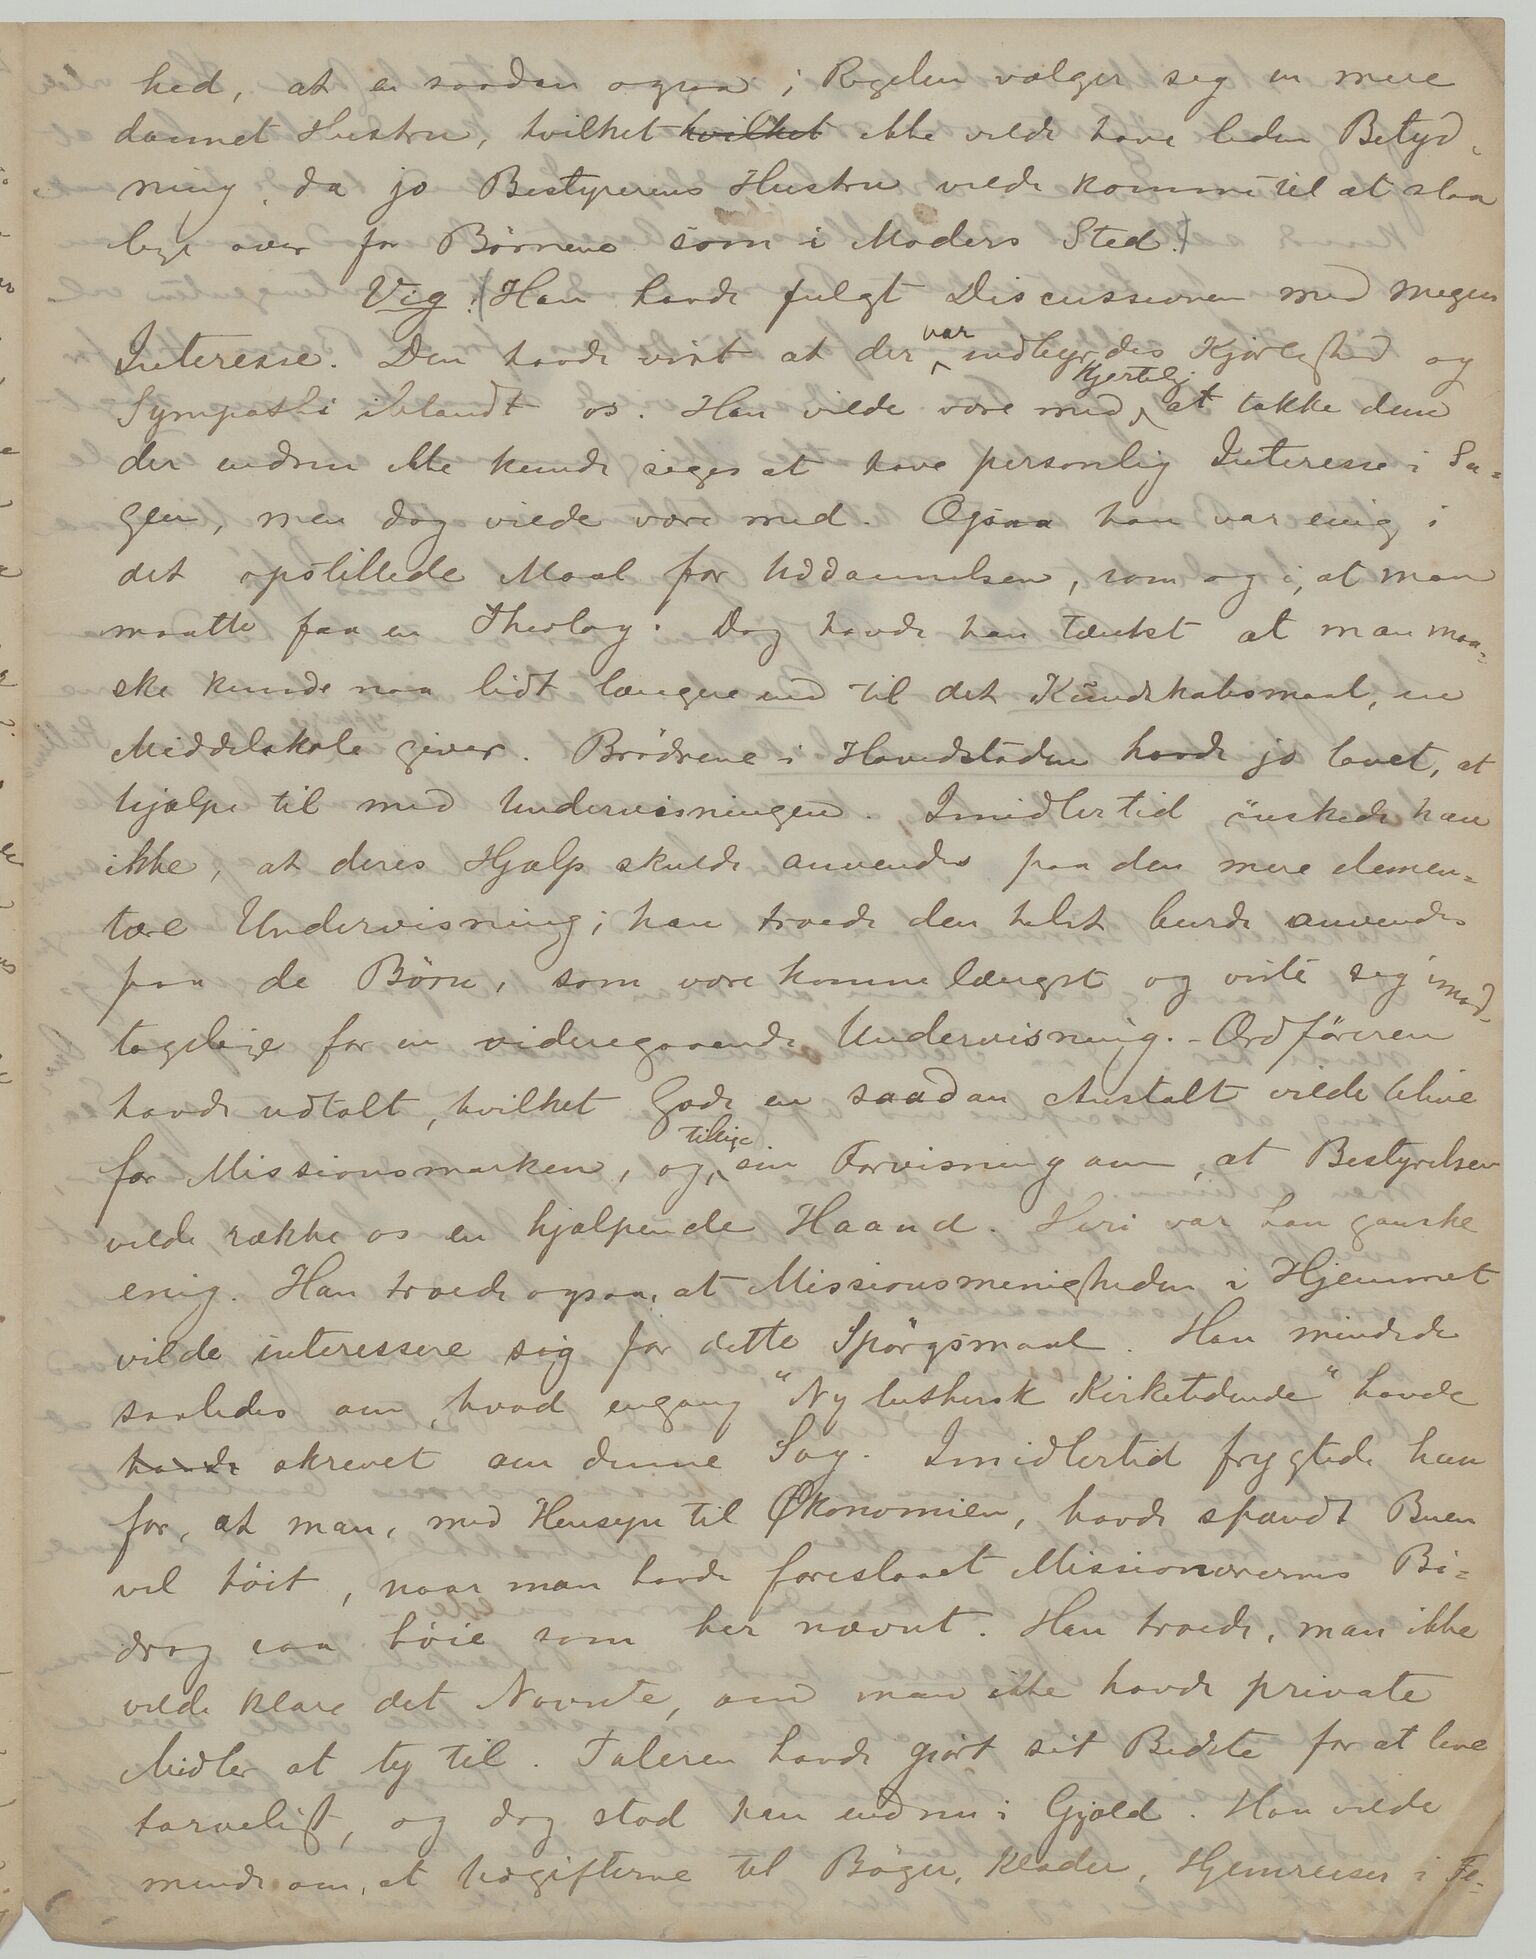 hed, at en saadan ogsaa i Regelen vælger sig en mere
dannet Hustru, hvilket hvilket ikke vilde have liden Betyd-
ning, da jo Bestyrerens Hustru vilde komme til at staa
lige over for Börnene som i Moders Sted.)
Vig. (Han havde fulgt Discussionen med megen
Interesse. Den havde vist at der var indbyrdes Kjærlighed og
Sympathi iblandt os. Han vilde være med hjertelig at takke dem
der endnu ikke kunde siges at have personlig Interesse i Sa-
gen, men dog vilde være med. Ogsaa han var enig i
det opstillede Maal for Uddannelsen, som og i, at man
maatte faa en Theolog. Dog havde han tænkt at man maa-
ske kunde naa lidt længere end til det Kundskabsmaal, en
Middelskole giver. Brödrene i Hovedstaden havde jo lovet, at
hjælpe til med Undervisningen. Imidlertid önskede han
ikke, at deres Hjælp skulde anvendes paa den mere elemen-
tære Undervisning; han troede den helst burde anvendes
paa de Börn, som vare komne længst og viste sig mod-
tagelige for en videregaaende Undervisning. - Ordföreren
havde udtalt, hvilket Gode en saadan Anstalt vilde blive
for Missionsmarken, og tillige sin Forvisning om, at Bestyrelsen
vilde række os en hjælpende Haand. Heri var han ganske
enig. Han troede ogsaa, at Missionsmenigheden i Hjemmet
vilde interessere sig for dette Spörgsmaal. Han mindede
saaledes om, hvad engang "Ny luthersk Kirketidende" havde
havde skrevet om denne Sag. Imidlertid frygtede han
for, at man, med Hensyn til Økonomien, havde spændt Buen
vel höit, naar man havde foreslaaet Missionærernes Bi-
drag saa höie som her nævnt. Han troede, man ikke
vilde klare det Nævnte, om man ikke havde private
Midler at ty til. Taleren havde gjört sit Bedste for at leve
tarveligt, og dog stod han endnu i Gjæld. Han vilde
minde om, at Udgifterne til Böger, Klæder, Hjemreiser i Fe-